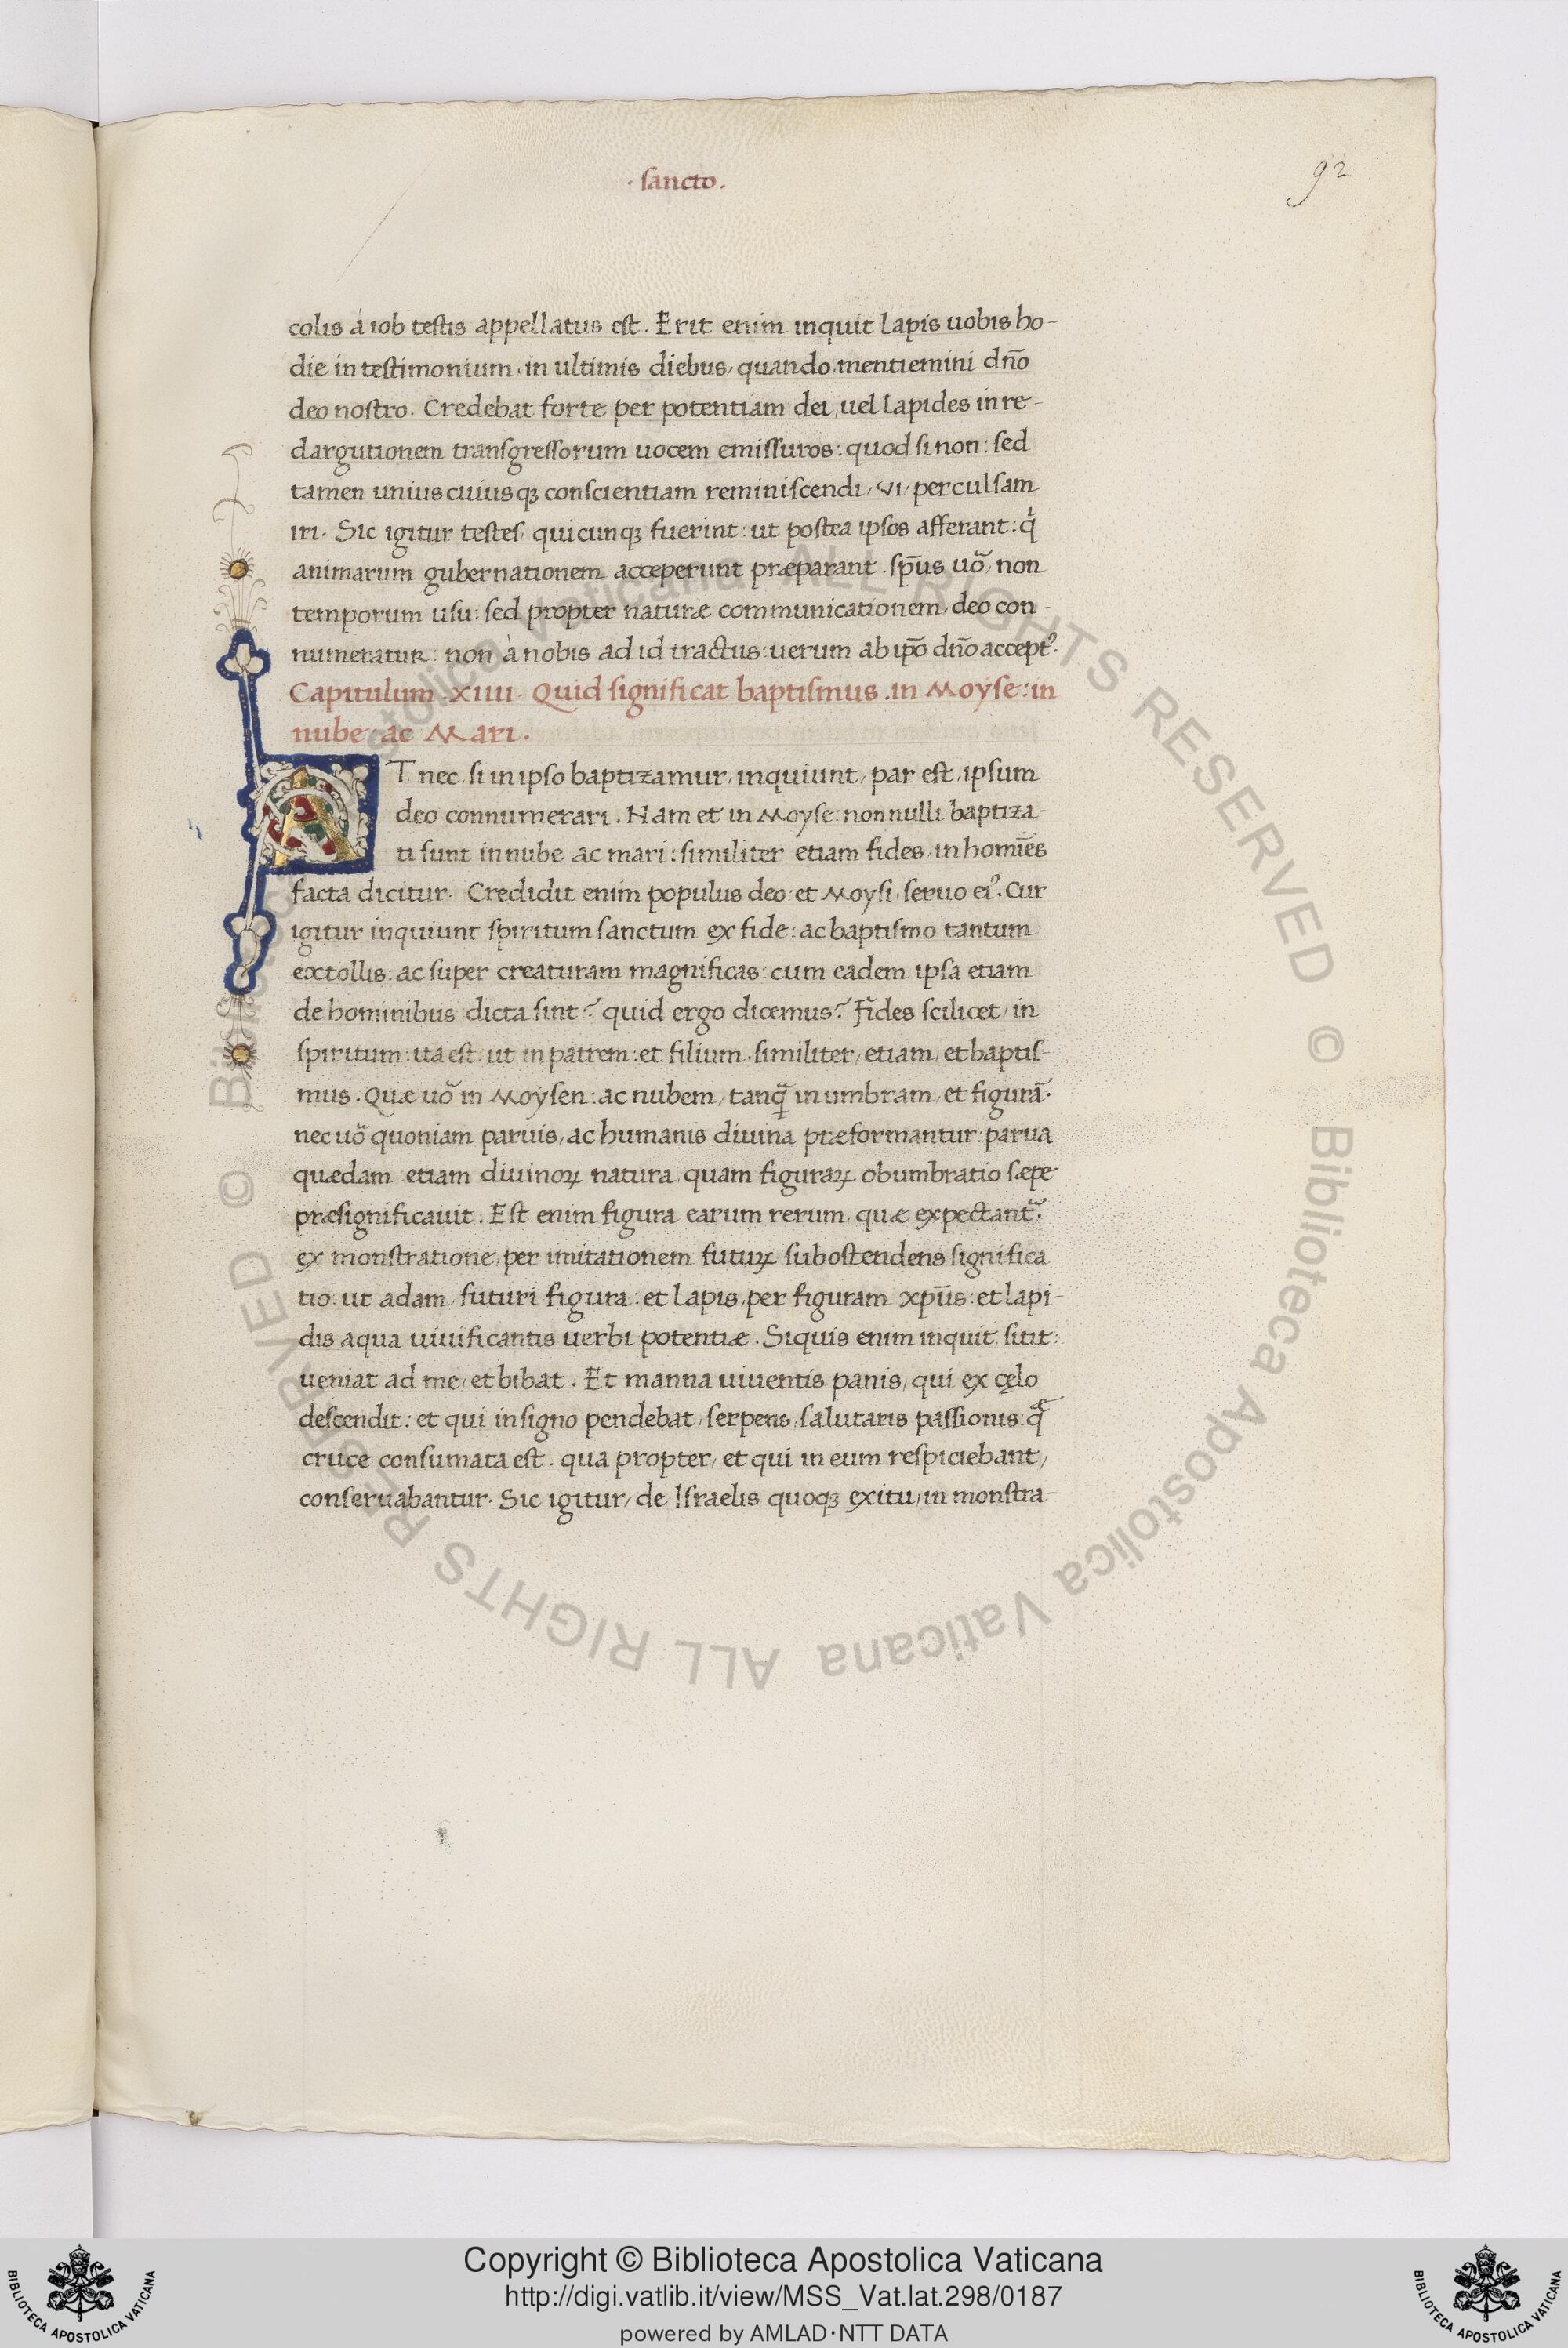 · sancto .
92
colis à iob testis appellatus est . Erit enim inquit lapis uobis ho-
die in testimonium . in ultimis diebus, quando mentiemini dño
deo nostro . Credebat forte per potentiam dei, uel lapides in re-
dargutionem transgressorum uocem emissuros : quod si non : sed
tamen unius cuiusqꝫ conscientiam reminiscendi, ui, perculsam
iri . Sic igitur testes, quicunqꝫ fuerint : ut postea ipsos afferant : q̇
animarum gubernationem acceperunt præparant . sp̄us uō, non
temporum usu : sed propter naturæ communicationem, deo con-
numeratur : non à nobis ad id tractus : uerum ab ip̄o dño accept᾿.
Capitulum · XIIII · Quid significat baptismus . in Moyse : in
nube ac Mari .
AT nec si in ipso baptizamur, inquiunt, par est, ipsum
deo connumerari . Nam et in Moyse : nonnulli baptiza-
ti sunt in nube ac mari : similiter etiam fides, in homīes
facta dicitur . Credidit enim populus deo : et Moysi, seruo ei᾿. Cur
igitur inquiunt spiritum sanctum ex fide : ac baptismo tantum
extollis : ac super creaturam magnificas : cum eadem ipsa etiam
de hominibus dicta sint ? quid ergo dicemus ? Fides scilicet, in
spiritum : ita est . ut in patrem : et filium . similiter, etiam, et baptis-
mus . Quæ uō in Moysen : ac nubem, tanq̄ in umbram, et figurā.
nec uō quoniam paruis, ac humanis diuina præformantur : parua
quædam etiam diuinoꝝ natura, quam figuraꝝ obumbratio sæpe
præsignificauit . Est enim figura earum rerum, quæ expectant᷑.
ex monstratione, per imitationem futuꝝ subostendens significa
tio . ut adam, futuri figura : et lapis, per figuram xp̄us : et lapi-
dis aqua uiuificantis uerbi potentiæ . Siquis enim inquit, sitit :
ueniat ad me, et bibat . Et manna uiuentis panis, qui ex cęlo
descendit : et qui in signo pendebat, serpens, salutaris passionis : q̄
cruce consumata est . qua propter, et qui in eum respiciebant,
conseruabantur . Sic igitur, de Israelis quoqꝫ exitu, in monstra-
© Biblioteca Apostolica Vaticana ALL RIGHTS RESERVED © Biblioteca Apostolica Vaticana ALL RIGHTS RESERVED
Copyright © Biblioteca Apostolica Vaticana
http://digi.vatlib.it/view/MSS_Vat.lat.298/0187
powered by AMLAD·NTT DATA
BIBLIOTECA APOSTOLICA VATICANA
BIBLIOTECA APOSTOLICA VATICANA